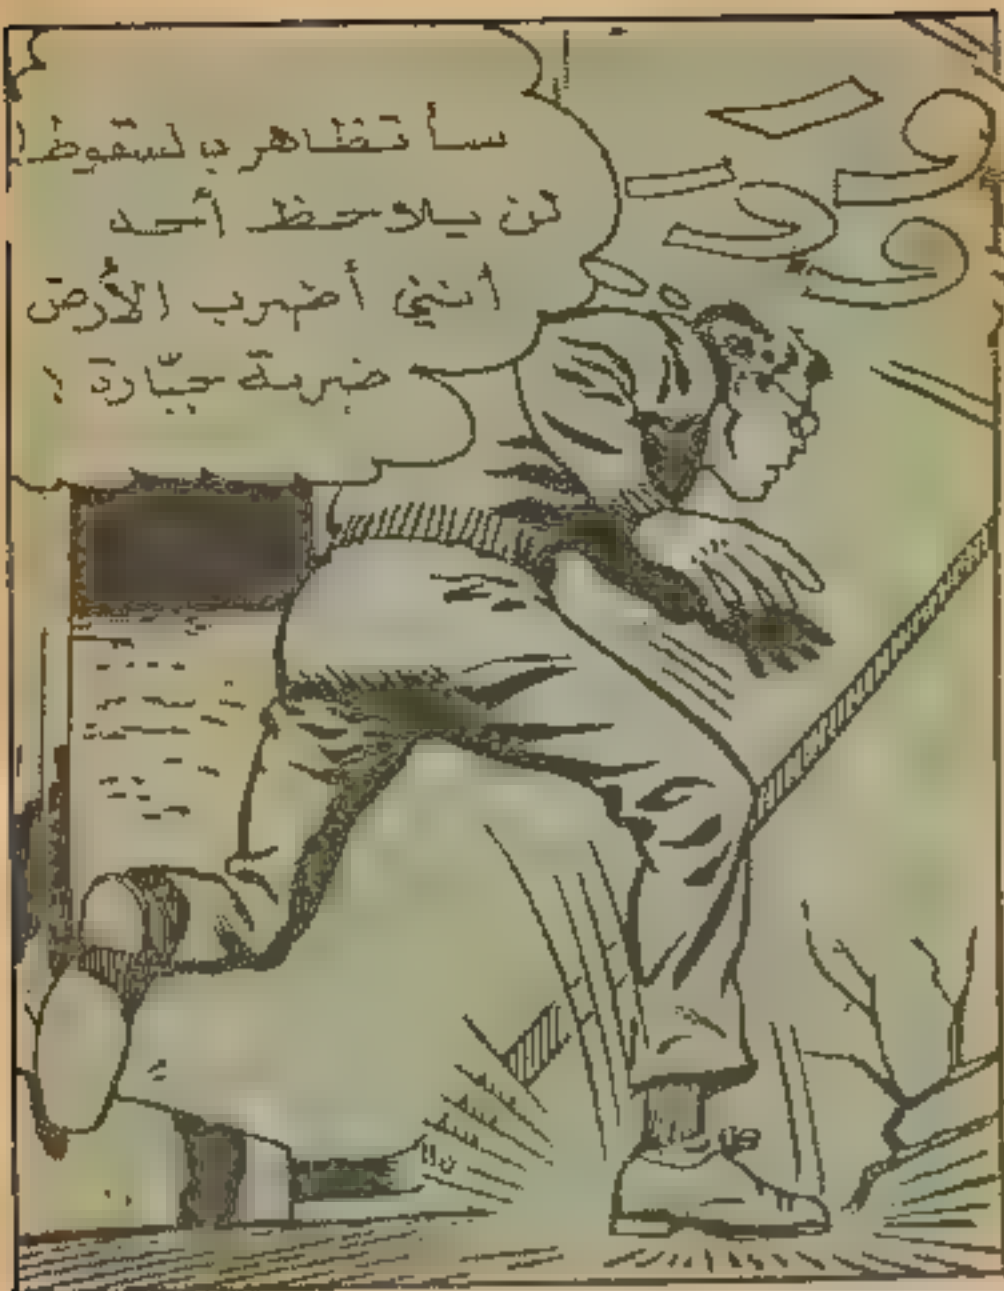 سأتظاهر بالسقوط!
لن يلاحظ أحد
أنني أضرب الأرض
ضربة جبّارة !